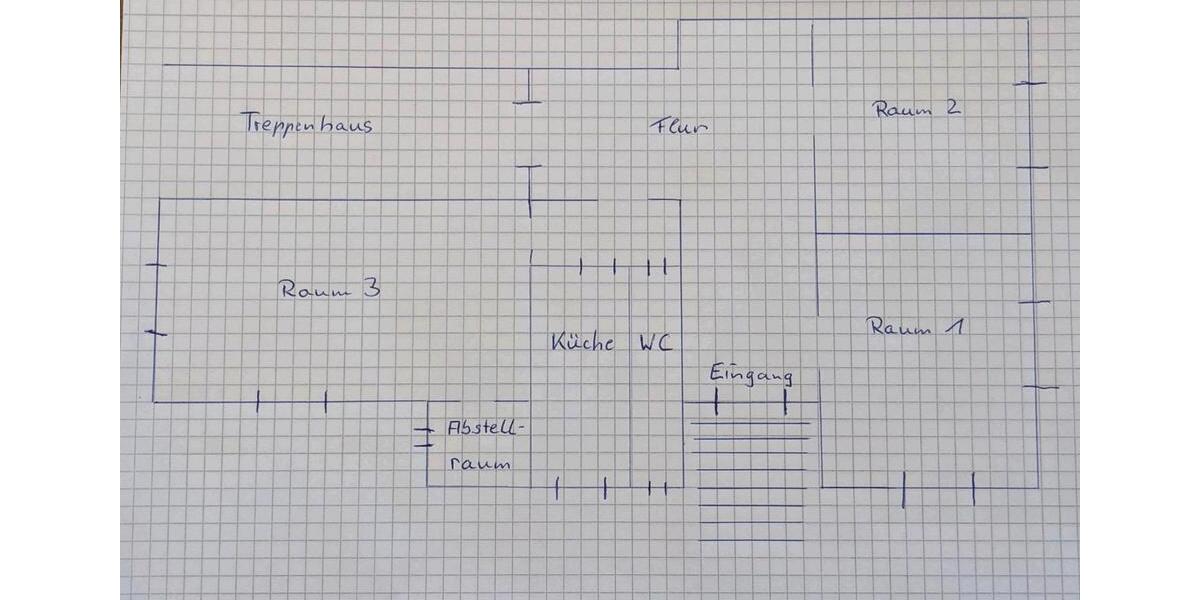 Raum 2
Treppenhaus
Flur
Raum 3
Raum 1
Küche
WC
Eingang
Abstell-
raum